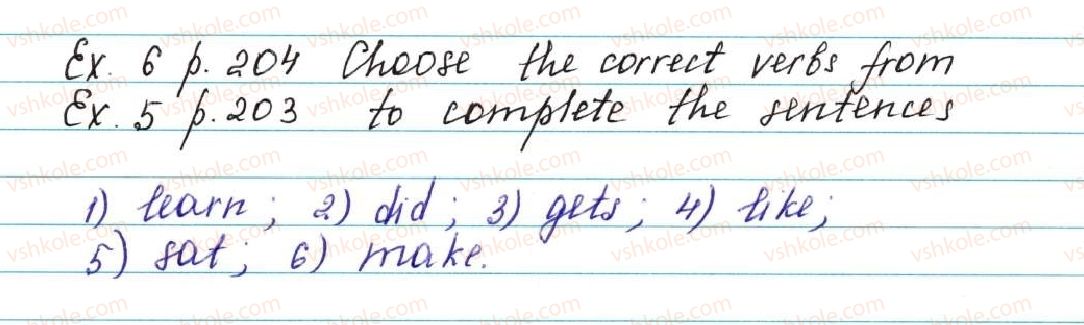 Ex. 6 p. 204 Choose the correct verbs from
Ex. 5 p. 203 to complete the sentences
1) learn; 2) did; 3) gets; 4) like;
5) sat; 6) make.